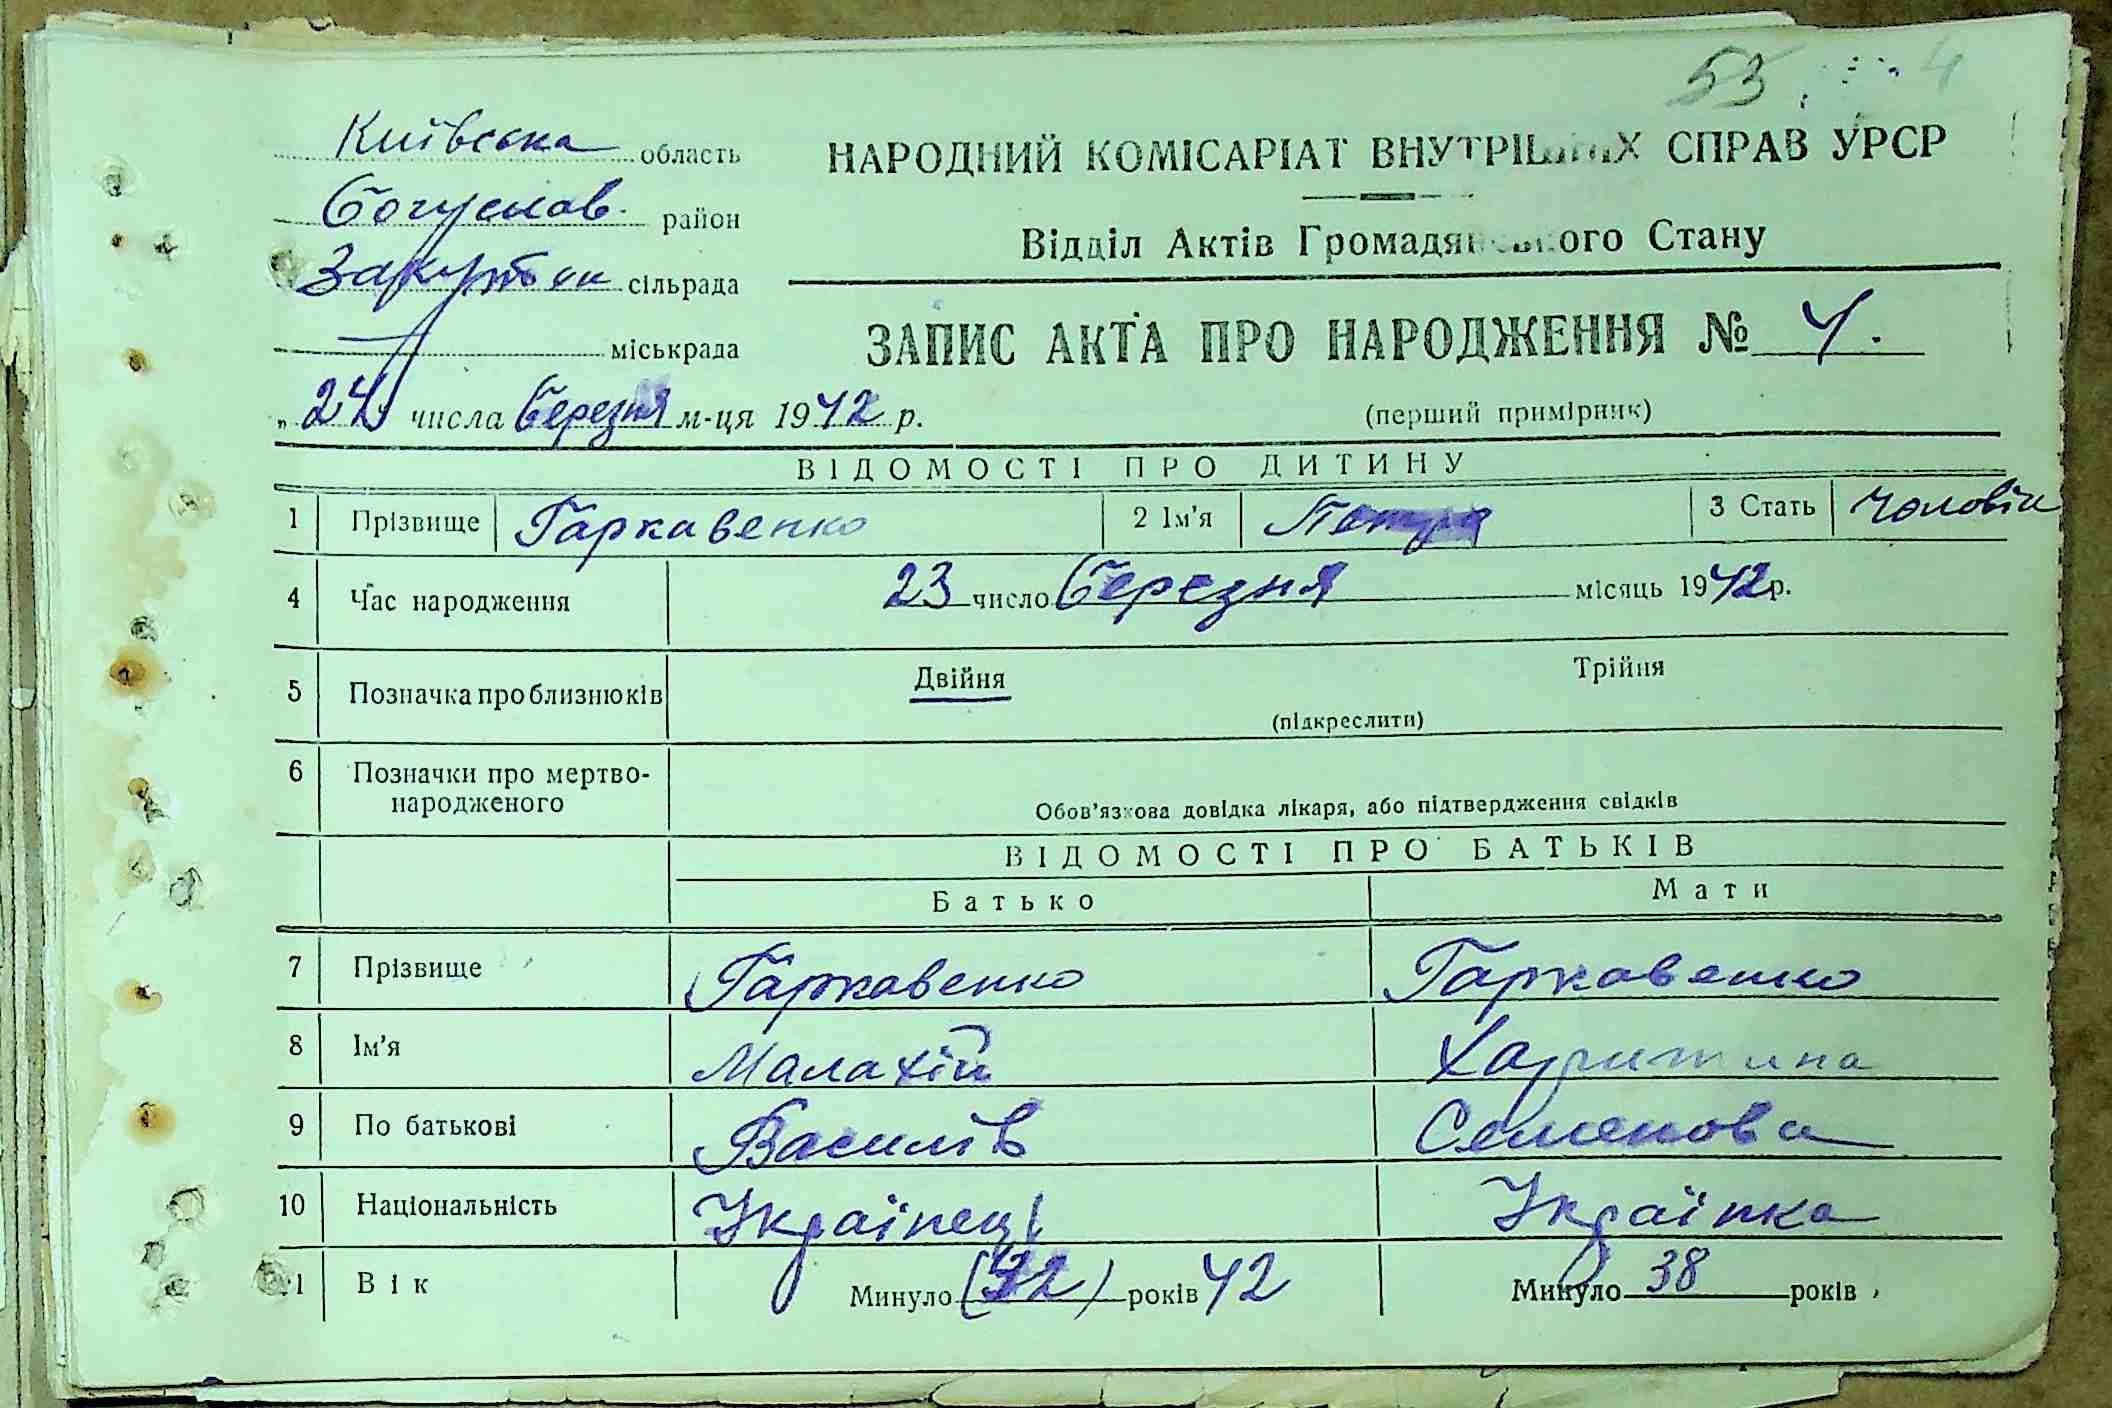 53
Київська область
Богуслав. район
Закутян сільрада
міськрада
НАРОДНИЙ КОМІСАРІАТ ВНУТРІШНІХ СПРАВ УРСР
Відділ Актів Громадянського Стану
ЗАПИС АКТА ПРО НАРОДЖЕННЯ № 4.
„24" числа Березня м-ця 1942 р.
(перший примірник)
ВІДОМОСТІ ПРО ДИТИНУ
1 Прізвище Гаркавенко 2 Ім'я Петро 3 Стать Чоловіч
4 Час народження 23 число Березня місяць 1942 р.
5 Позначка про близнюків Двійня Трійня
(підкреслити)
6 Позначки про мертво-
народженого
Обов'язкова довідка лікаря, або підтвердження свідків
ВІДОМОСТІ ПРО БАТЬКІВ
Батько Мати
7 Прізвище Гаркавенко Гаркавенко
8 Ім'я Малахій Харитина
9 По батькові Василів Семенова
10 Національність Українець Українка
11 Вік Минуло (42) років 42 Минуло 38 років